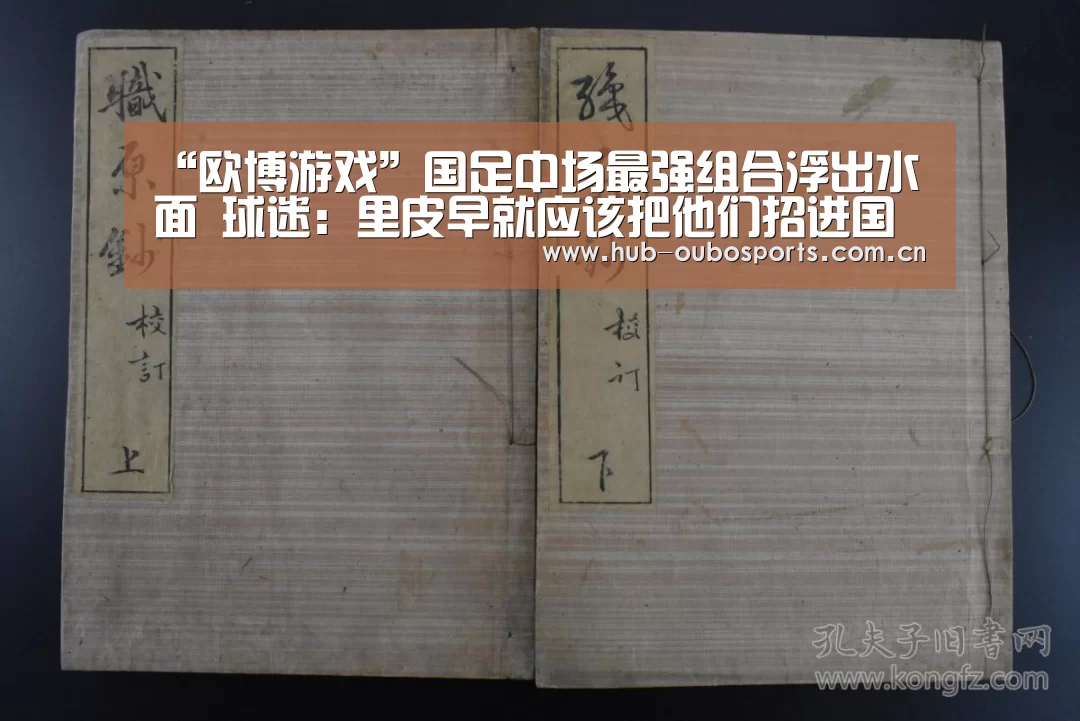 職原鈔
校訂
上
“欧博游戏”国足中场最强组合浮出水
面 球迷：里皮早就应该把他们招进国
www.hub-oubosports.com.cn
校訂
下
孔夫子旧书网
www.kongfz.com